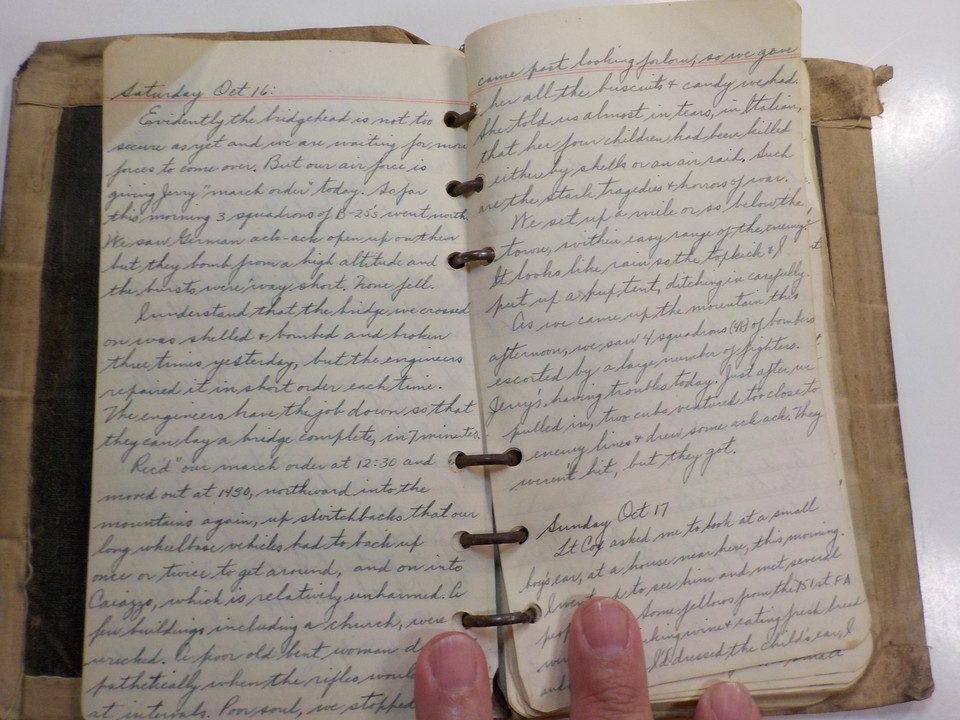 Saturday Oct 16:
Evidently the bridgehead is not too
secure as yet and we are waiting for more
forces to come over. But our air force is
giving Jerry "march order" today. So far
this morning 3 squadrons of B-25's went north
We saw German ack-ack open up on them
but they bomb from a high altitude and
the bursts were way short, none fell.
I understand that the bridge we crossed
on was shelled & bombed and broken
three times yesterday, but the engineers
repaired it in short order each time.
The engineers have the job down so that
they can lay a bridge complete, in 7 minutes.
Rec'd our march order at 12:30 and
moved out at 1430, northward into the
mountains again, up switchbacks that our
long wheelbase vehicles had to back up
once or twice to get around, and on into
Caiazzo, which is relatively unharmed. A
few buildings including a church, were
wrecked. A poor old bent woman
pathetically when the rifles
at intervals. Poor soul, we stopped
came past looking forlorn, so we gave
her all the buiscuits & candy we had.
She told us almost in tears, in Italian,
that her four children had been killed
either by shells or an air raid. Such
are the stark tragedies & horrors of war.
We set up a mile or so below the
town, within easy range of the enemy.
It looks like rain, so the topkick & I
put up a pup tent, ditching in carefully.
As we came up the mountain this
afternoon, we saw 4 squadrons (48) of bombers
escorted by a large number of fighters.
Jerry's having troubles today. Just after we
pulled in, two cubs ventured too close to
enemy lines & drew some ack ack. They
weren't hit, but they got.
Sunday Oct 17
Lt Cox asked me to look at a small
boy's ear, at a house near here, this morning.
I went to see him and met several
Some fellows from the 151st FA
wine & eating fresh bread
I'd dressed the child's ear, I